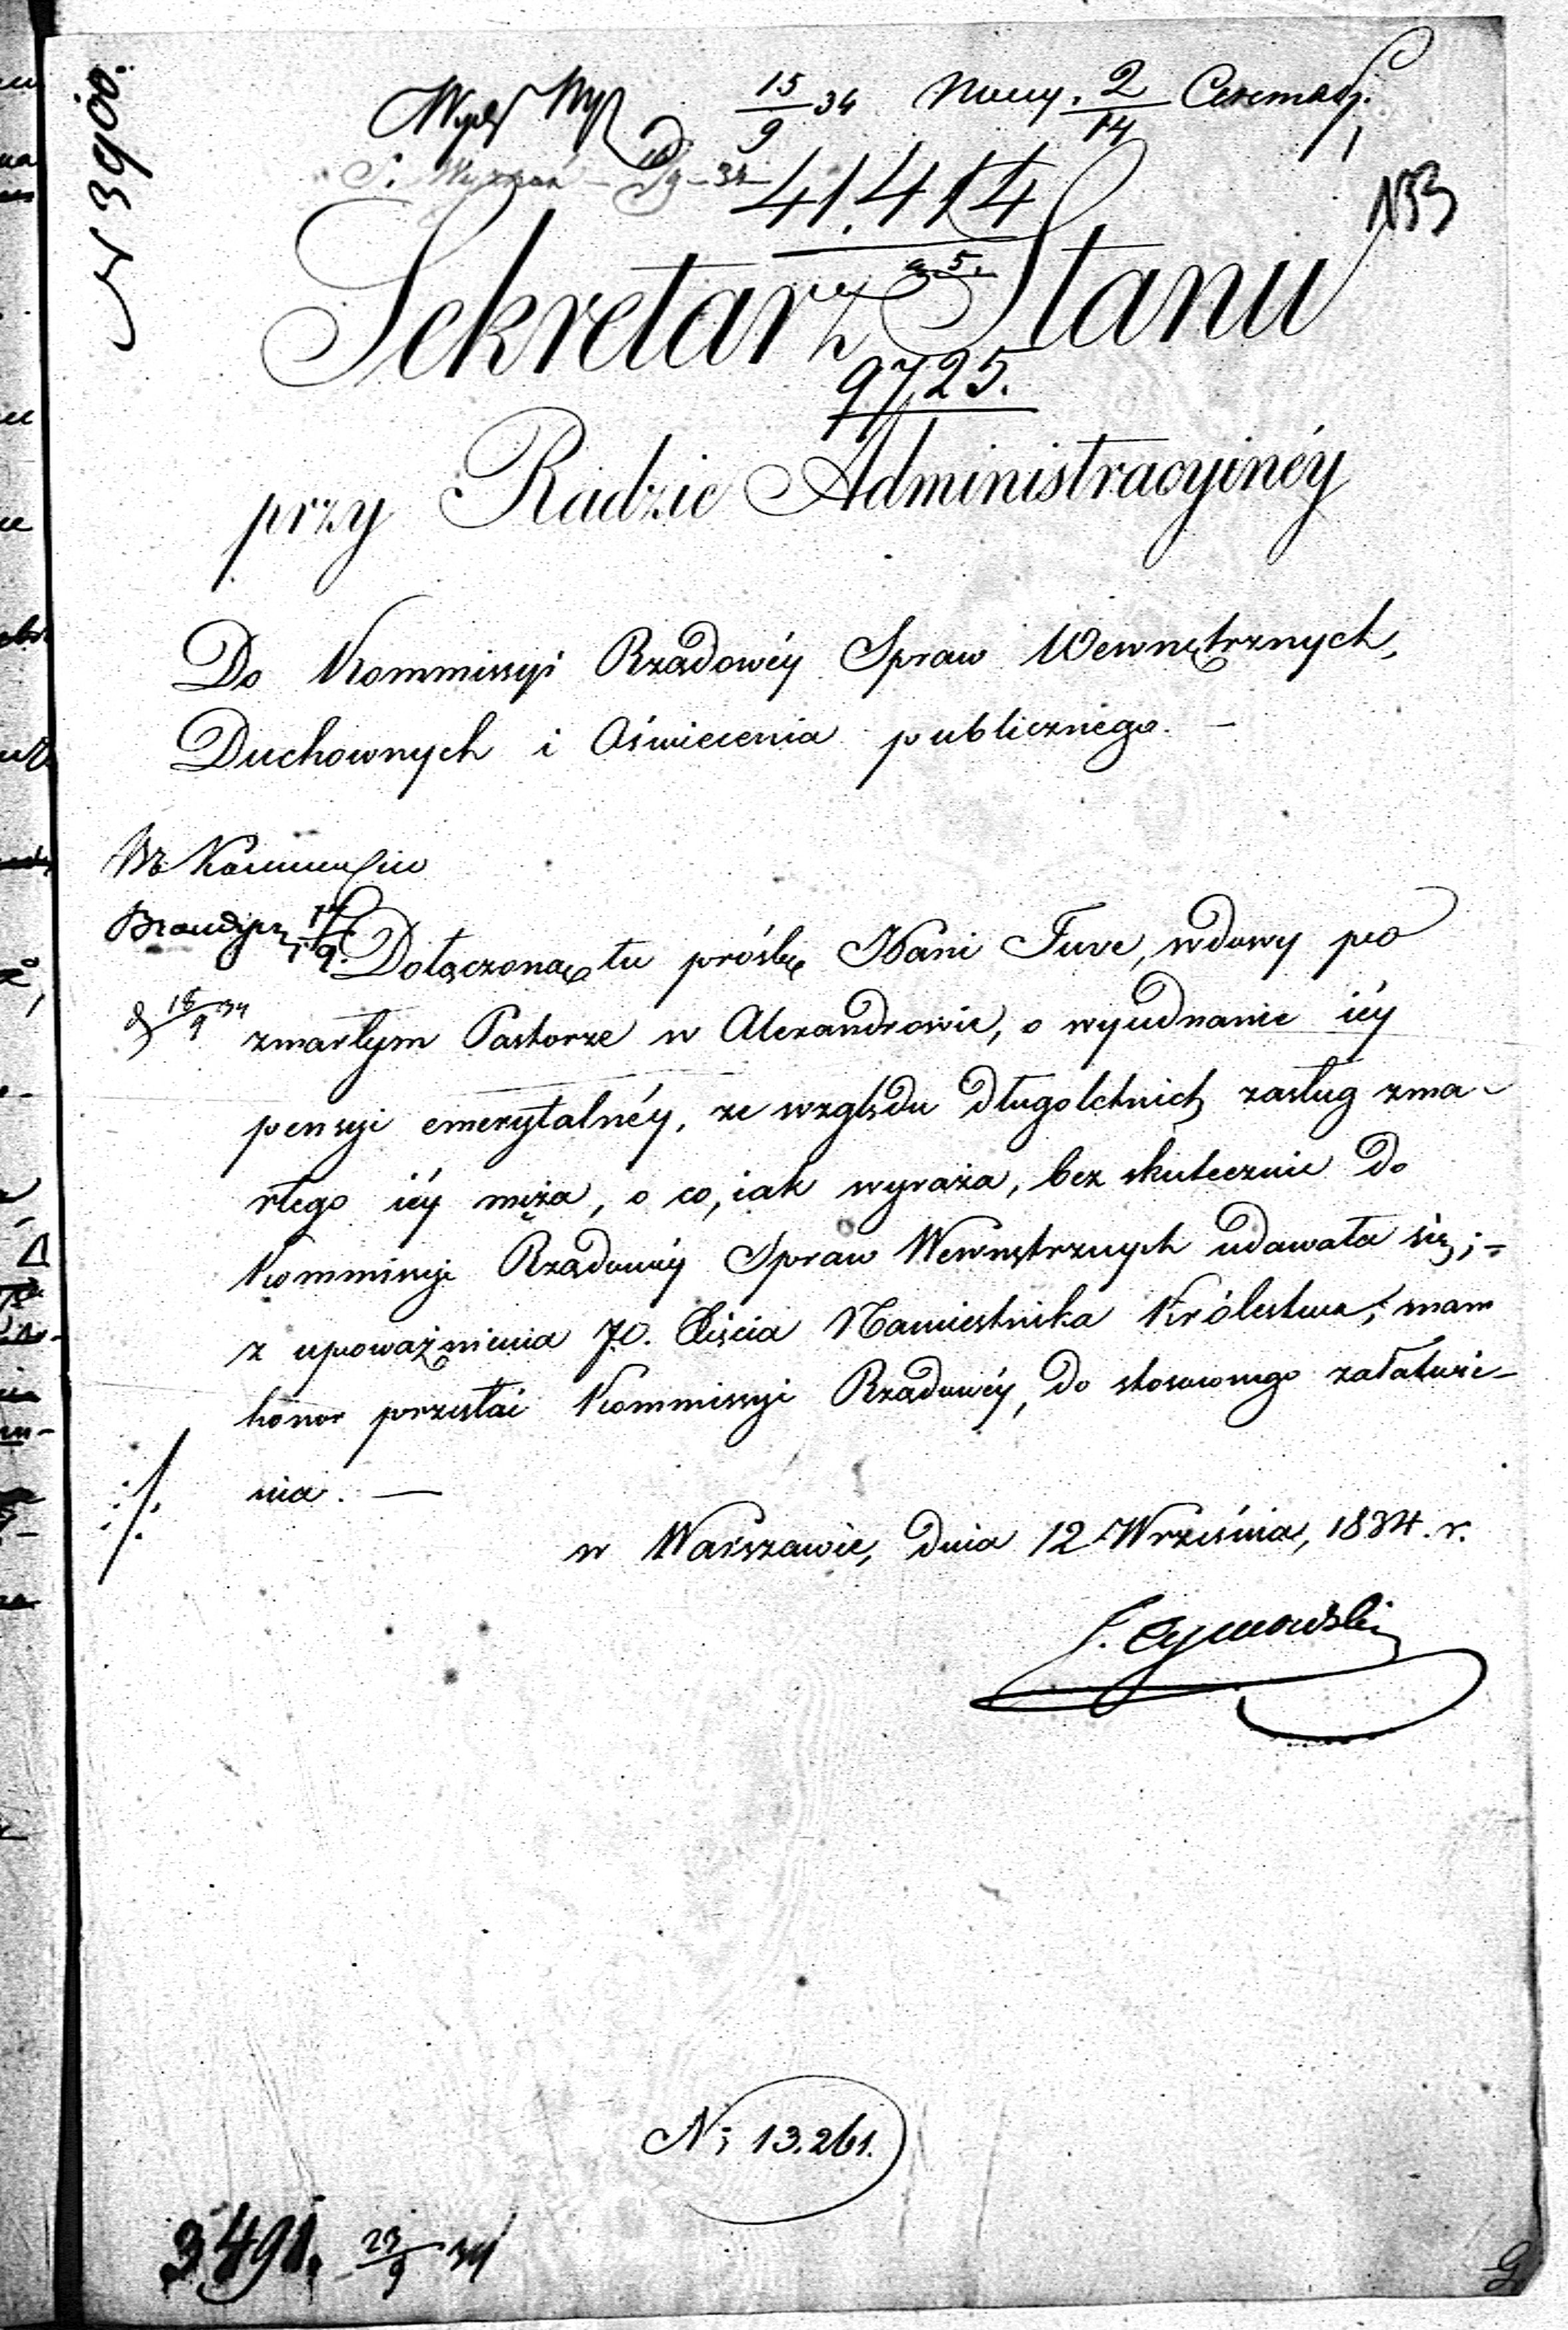 N 3900.
15/9 34 2/14
41.414
133
a 5.
Sekretarz Stanu
9725.
przy Radzie Administracyinéy
Do Kommissyi Rządowéy Spraw Wewnętrznych,
Duchownych i Oświecenia publicznego. —
Dołączoną tu prośbę Pani Tuve, wdowy po
18/9 34
zmarłym Pastorze w Alexandrowie, o wyiednanie iéy
pensyi emerytalnéy, ze względu długoletnich zasług zma-
rłego iéy męża, o co, iak wyraża, bezskutecznie do
Kommissyi Rządowéy Spraw Wewnętrznych udawała się;
z upoważnienia JO. Xięcia Namiestnika Królestwa, mam
honor przesłać Kommissyi Rządowéy, do stosownego załatwie-
nia. —
w Warszawie, dnia 12 Września, 1834. r.
J. Tymowski
N; 13.261.
3491. 23/9 34